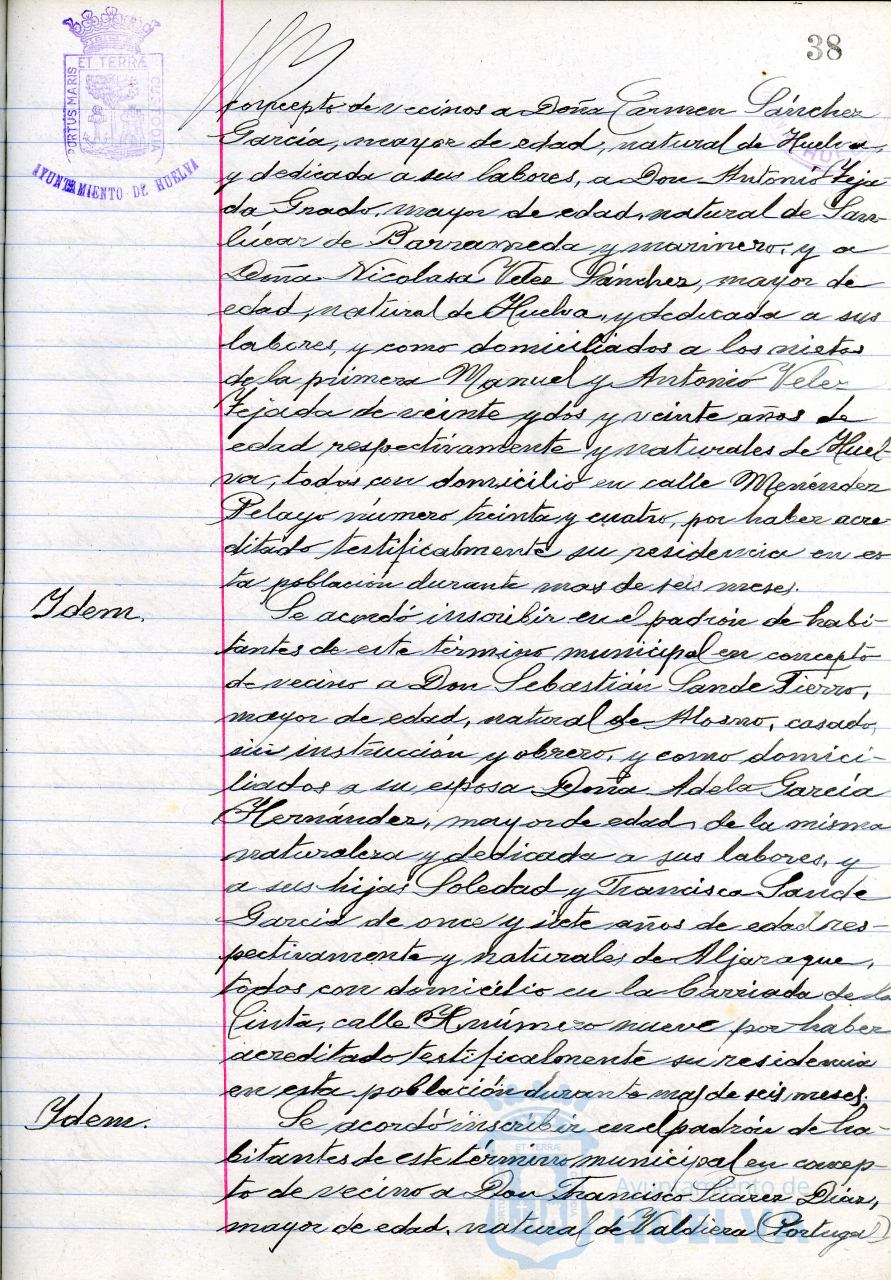 38
ET TERRÆ
PORTUS MARIS
CUSTODIA
AYUNTAMIENTO DE HUELVA
concepto de vecinos a Doña Carmen Sánchez
García, mayor de edad, natural de Huelva,
y dedicada a sus labores, a Don Antonio Teja-
da Grado, mayor de edad, natural de San-
lúcar de Barrameda y marinero, y a
Doña Nicolasa Velez Sánchez, mayor de
edad, natural de Huelva, y dedicada a sus
labores, y como domiciliados a los nietos
de la primera Manuel y Antonio Velez
Tejada de veinte y dos y veinte años de
edad respectivamente y naturales de Huel-
va, todos con domicilio en calle Menéndez
Pelayo número treinta y cuatro, por haber acre-
ditado testificalmente su residencia en es
ta población durante mas de seis meses.
Idem.
Se acordó inscribir en el padrón de habi-
tantes de este término municipal en concepto
de vecino a Don Sebastián Sande Fierro,
mayor de edad, natural de Alosno, casado,
sin instrucción y obrero, y como domici-
liados a su esposa Doña Adela García
Hernández, mayor de edad, de la misma
naturaleza y dedicada a sus labores, y
a sus hijas Soledad y Francisca Sande
García de once y siete años de edad res-
pectivamente y naturales de Aljaraque,
todos con domicilio en la barriada de la
Cinta, calle H número nueve por haber
acreditado testificalmente su residencia
en esta población durante mas de seis meses.
Idem.
Se acordó inscribir en el padrón de ha-
bitantes de este término municipal en concep-
to de vecino a Don Francisco Suarez Diaz,
mayor de edad, natural de Valdiera (Portugal)
Ayuntamiento de
HUELVA